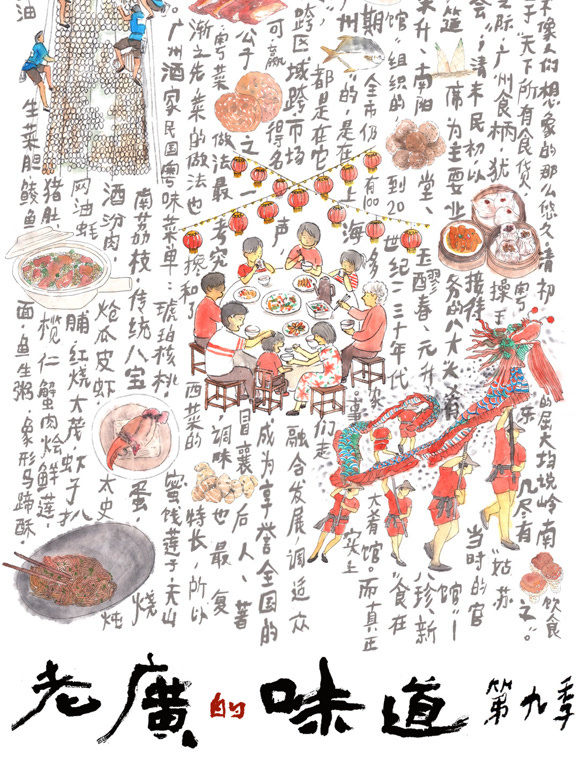 不像人们想象的那么悠久。清初的屈大均说岭南饮食
于“天下所有食货，粤东几尽有之。”
之际，广州食柄，犹操于姑苏
会”；清末民初以接待当时的官
筵席为主要业务的八大大肴馆”—八珍、新
来升、南阳堂、玉醪春、元升“食在
馆”组织的，到20世纪二三十年代大肴馆。而真正
期，全市仍有100多家
州”的，是在上海事实上
都是在它们走
跨区域跨市场融合发展，调适众
可赢得名声成为享誉全国的
公子之一冒襄后人、著
粤菜做法最考究调味也最复
渐之先，菜的做法也搀和了西菜的特长，所以
广州酒家民国粤味菜单：琥珀核桃 蜜饯莲子、天山
南荔枝 传统八宝蛋 烧
酒汾肉，炝瓜皮虾 太史 炖
网油蚝脯，红烧大茂虾子扒
猪肚 榄仁蟹肉烩鲜莲，
生菜胆鲮鱼面，鱼生粥，象形马蹄酥
油
老廣的味道 第九季